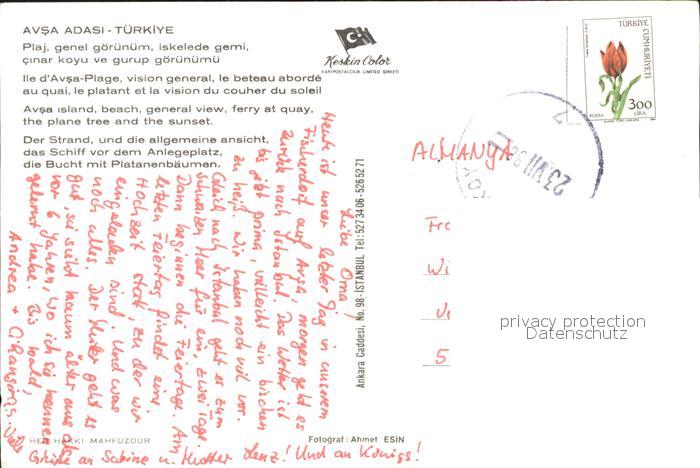 AVŞA ADASI - TÜRKİYE
Plaj, genel görünüm, iskelede gemi,
çınar koyu ve gurup görünümü
Ile d'Avşa-Plage, vision general, le beteau abordé
au quai, le platant et la vision du couher du soleil
Avşa ısland, beach, general view, ferry at quay,
the plane tree and the sunset.
Der Strand, und die allgemeine ansicht,
das Schiff vor dem Anlegeplatz,
die Bucht mit Platanenbäumen.
Keskin Color
KARTPOSTALCILIK LIMITED ŞİRKETİ
TÜRKİYE
CUMHURİYETİ
300
LİRA
POSTA
23 VII
ALMANYA
Fr
Wi
5
privacy protection
Datenschutz
Ankara Caddesi, No. 98-İSTANBUL Tel: 527 34 06 - 526 52 71
Liebe Oma!
Heute ist unser letzter Tag in unserem
Fischerdorf auf Avşa, morgen geht es
zurück nach Istanbul. Das Wetter ist
bis jetzt prima, vielleicht ein bischen
zu heiß. Wir haben noch viel vor.
Gleich nach Istanbul geht es zum
Schwarzen Meer für ein, zwei Tage.
Dann beginnen die Feiertage. Am
letzten Feiertag findet eine
Hochzeit statt, zu der wir
eingeladen sind. Und was
noch alles. Der geht es
gut, sie sieht kaum älter aus als
vor 6 Jahren, wo ich sie kennen
gelernt habe. Bis bald,
Andrea +
Viele
Grüße an Sabine u. Mutter Lenz! Und an Königs!
HER HAKKI MAHFUZDUR
Fotoğraf: Ahmet ESİN